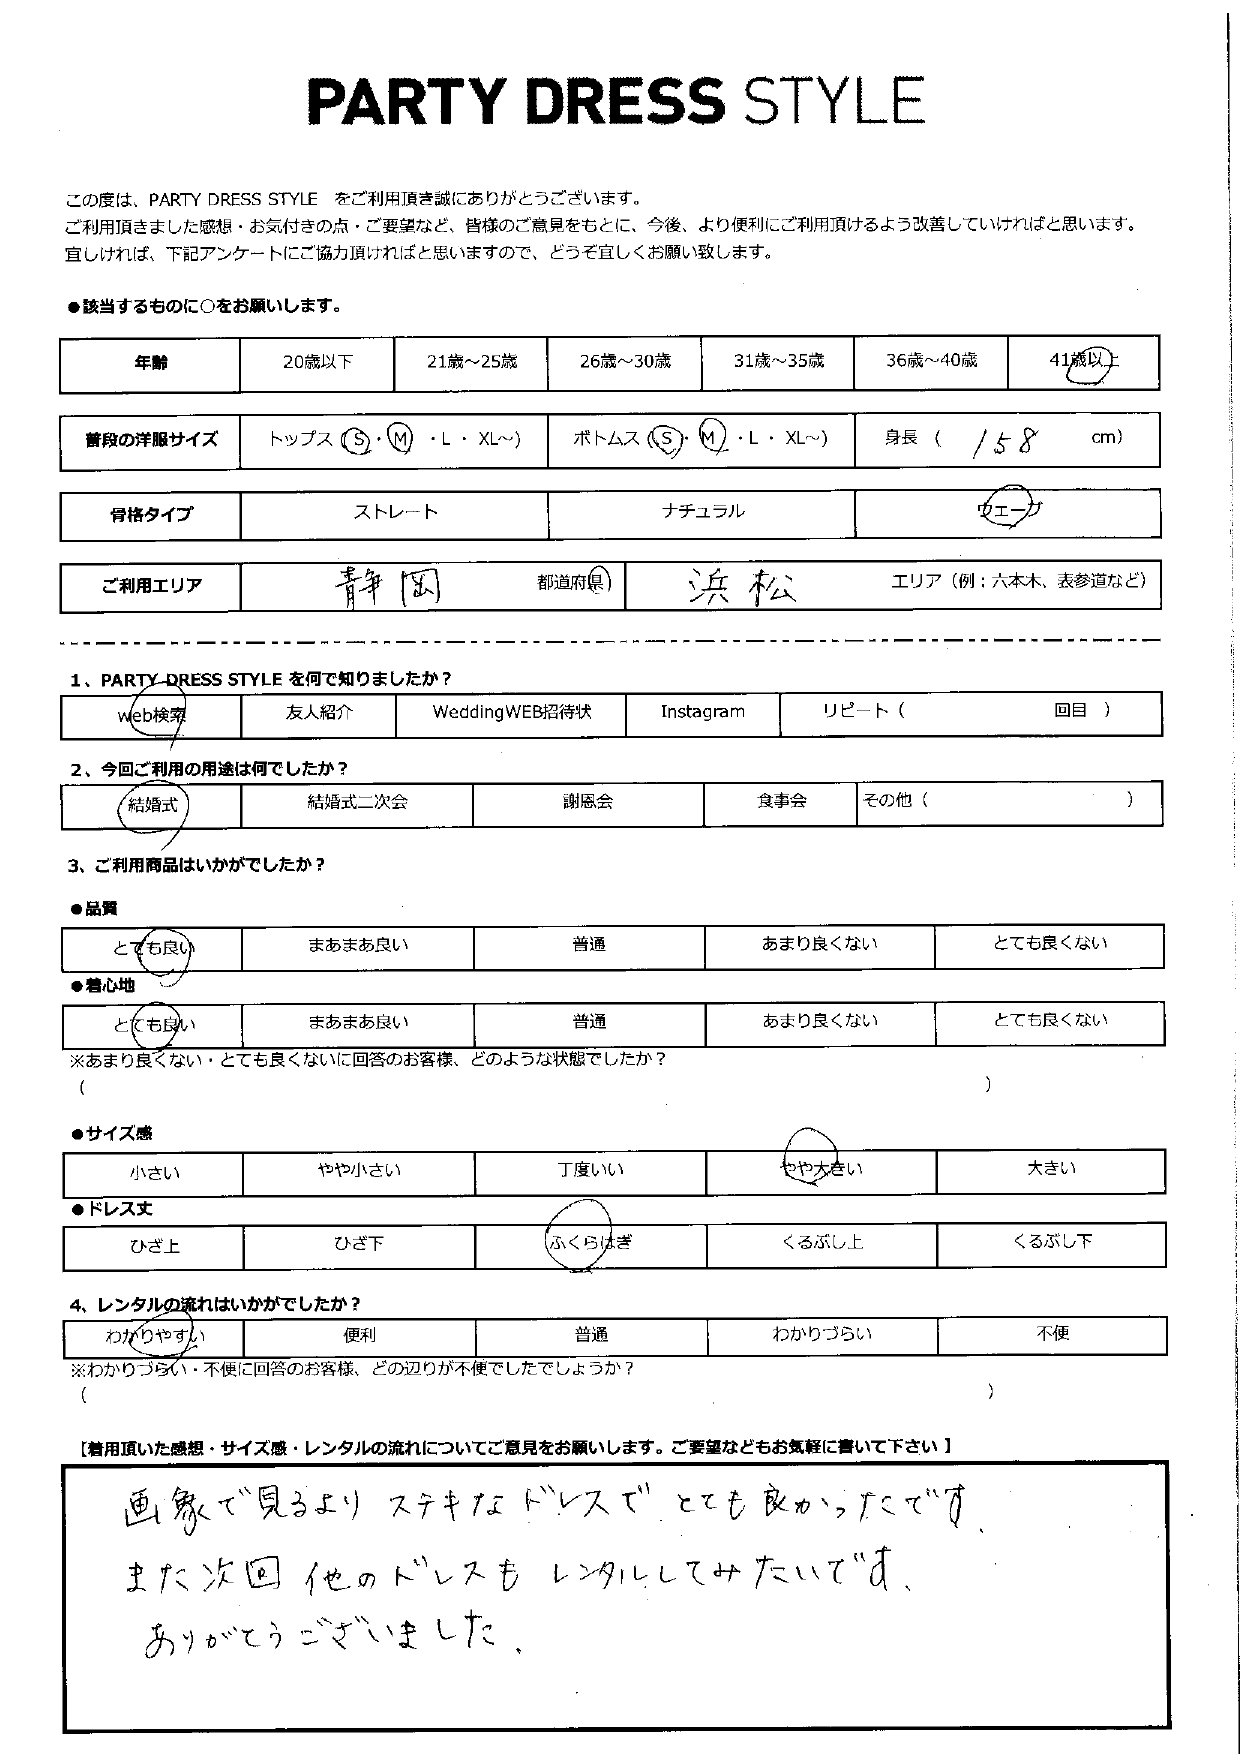 PARTY DRESS STYLE
この度は、PARTY DRESS STYLE をご利用頂き誠にありがとうございます。
ご利用頂きました感想・お気付きの点・ご要望など、皆様のご意見をもとに、今後、より便利にご利用頂けるよう改善していければと思います。
宜しければ、下記アンケートにご協力頂ければと思いますので、どうぞ宜しくお願い致します。
●該当するものに○をお願いします。
年齢 20歳以下 21歳～25歳 26歳～30歳 31歳～35歳 36歳～40歳 41歳以上
普段の洋服サイズ トップス (S・M ・L ・ XL～) ボトムス (S・M ・L ・ XL～) 身長 ( 158 cm)
骨格タイプ ストレート ナチュラル ウェーブ
ご利用エリア 静岡 都道府県 浜松 エリア（例：六本木、表参道など）
1、PARTY DRESS STYLE を何で知りましたか？
web検索 友人紹介 WeddingWEB招待状 Instagram リピート（ 回目 ）
2、今回ご利用の用途は何でしたか？
結婚式 結婚式二次会 謝恩会 食事会 その他（ ）
3、ご利用商品はいかがでしたか？
●品質
とても良い まあまあ良い 普通 あまり良くない とても良くない
●着心地
とても良い まあまあ良い 普通 あまり良くない とても良くない
※あまり良くない・とても良くないに回答のお客様、どのような状態でしたか？
（ ）
●サイズ感
小さい やや小さい 丁度いい やや大きい 大きい
●ドレス丈
ひざ上 ひざ下 ふくらはぎ くるぶし上 くるぶし下
4、レンタルの流れはいかがでしたか？
わかりやすい 便利 普通 わかりづらい 不便
※わかりづらい・不便に回答のお客様、どの辺りが不便でしたでしょうか？
（ ）
【着用頂いた感想・サイズ感・レンタルの流れについてご意見をお願いします。ご要望などもお気軽に書いて下さい 】
画象で見るより ステキな ドレスで とても良かったです、
また次回 他のドレスも レンタルしてみたいです、
ありがとうございました、